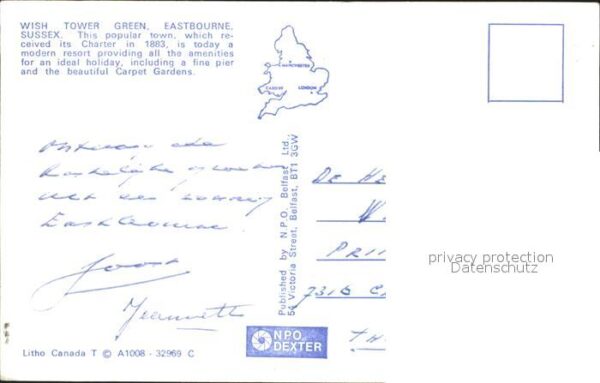 WISH TOWER GREEN, EASTBOURNE,
SUSSEX. This popular town, which re-
ceived its Charter in 1883, is today a
modern resort providing all the amenities
for an ideal holiday, including a fine pier
and the beautiful Carpet Gardens.
MANCHESTER
CARDIFF LONDON
Hartelijke
uit een zonnig
Eastbourne.
Joost
Jeannette
Published by N.P.O. Belfast Ltd.,
56 Victoria Street, Belfast, BT1 3GW
DE HE
PRI
7316 C
TH
privacy protection
Datenschutz
NPO
DEXTER
Litho Canada T © A1008 - 32969 C